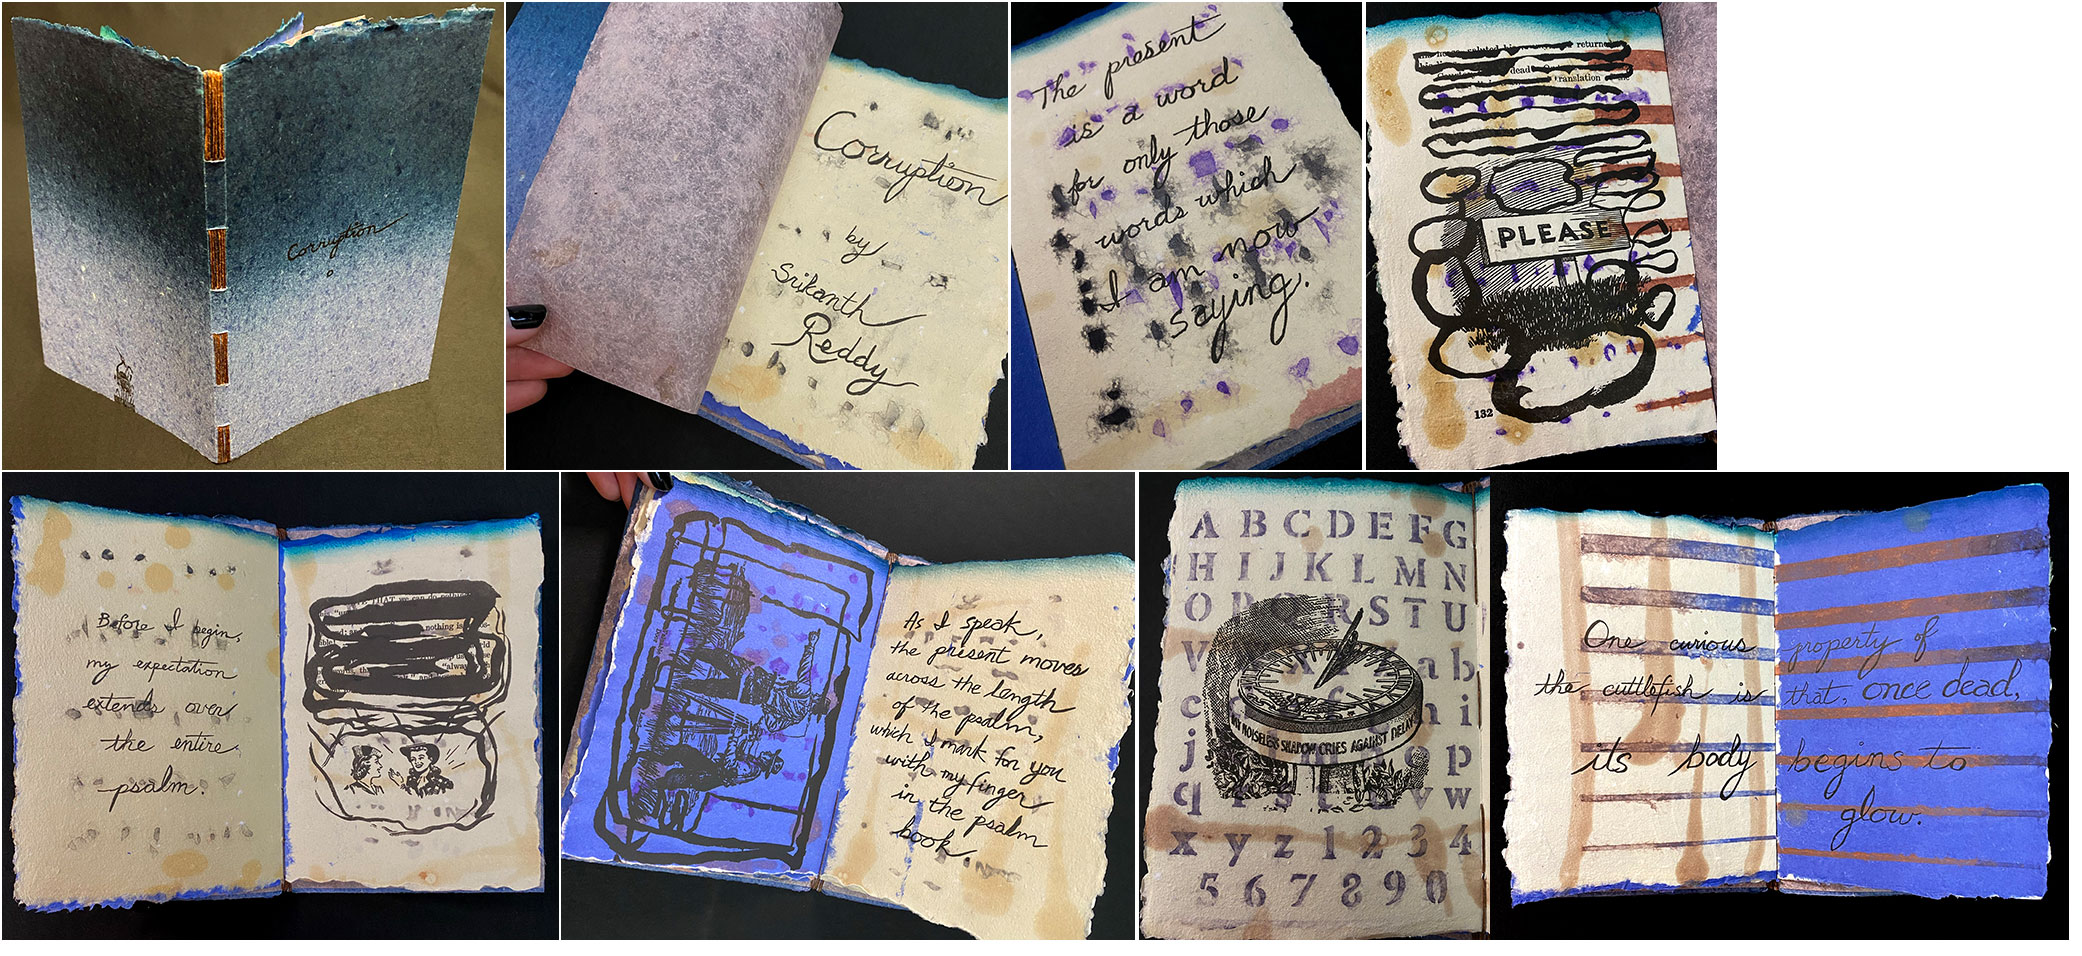 Corruption
Corruption
by
Srikanth
Reddy
The present
is a word
for only those
words which
I am now
saying.
returned
dead
translation of the
PLEASE
132
Before I begin,
my expectation
extends over
the entire
psalm.
THAT we can do nothing
nothing is
"always
As I speak,
the present moves
across the length
of the psalm,
which I mark for you
with my finger
in the psalm
book.
A B C D E F G
H I J K L M N
O P Q R S T U
V
a b
c
h i
j
o p
q r s t u v w
x y z 1 2 3 4
5 6 7 8 9 0
MY NOISELESS SHADOW CRIES AGAINST DELAY
One curious property of
the cuttlefish is that, once dead,
its body begins to
glow.